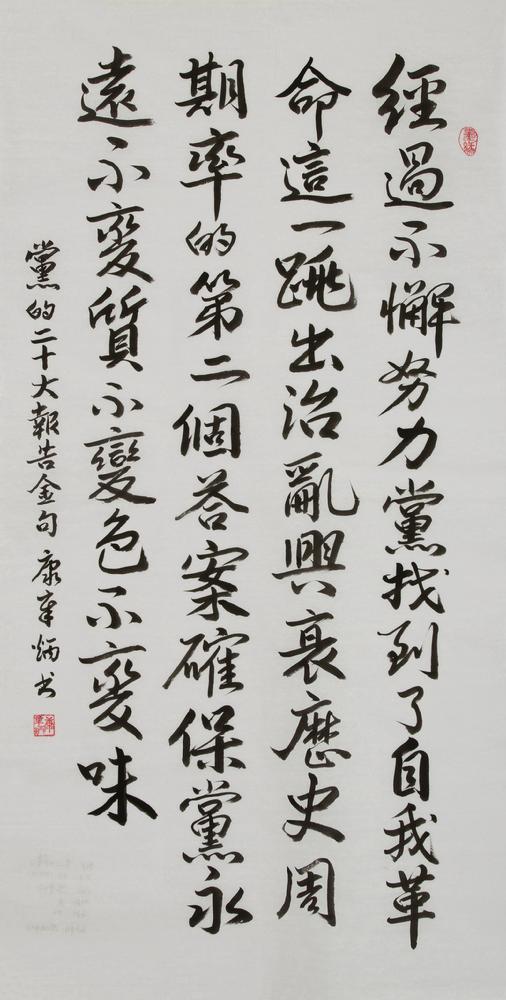 經過不懈努力黨找到了自我革
命這一跳出治亂興衰歷史周
期率的第二個答案確保黨永
遠不變質不變色不變味
黨的二十大報告金句 康車炳书